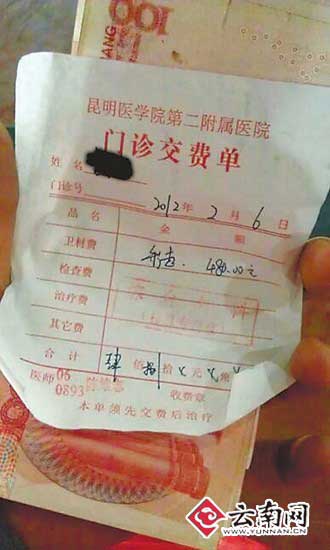 100
昆明医学院第二附属医院
门诊交费单
姓名
门诊号
2012年2月6日
品名 金额
卫材费 480.00元
检查费
治疗费
其它费
合计 肆佰捌拾 元 角
医师 08
0893
收费章
本单须先交费后治疗
云南网
WWW.YUNNAN.CN